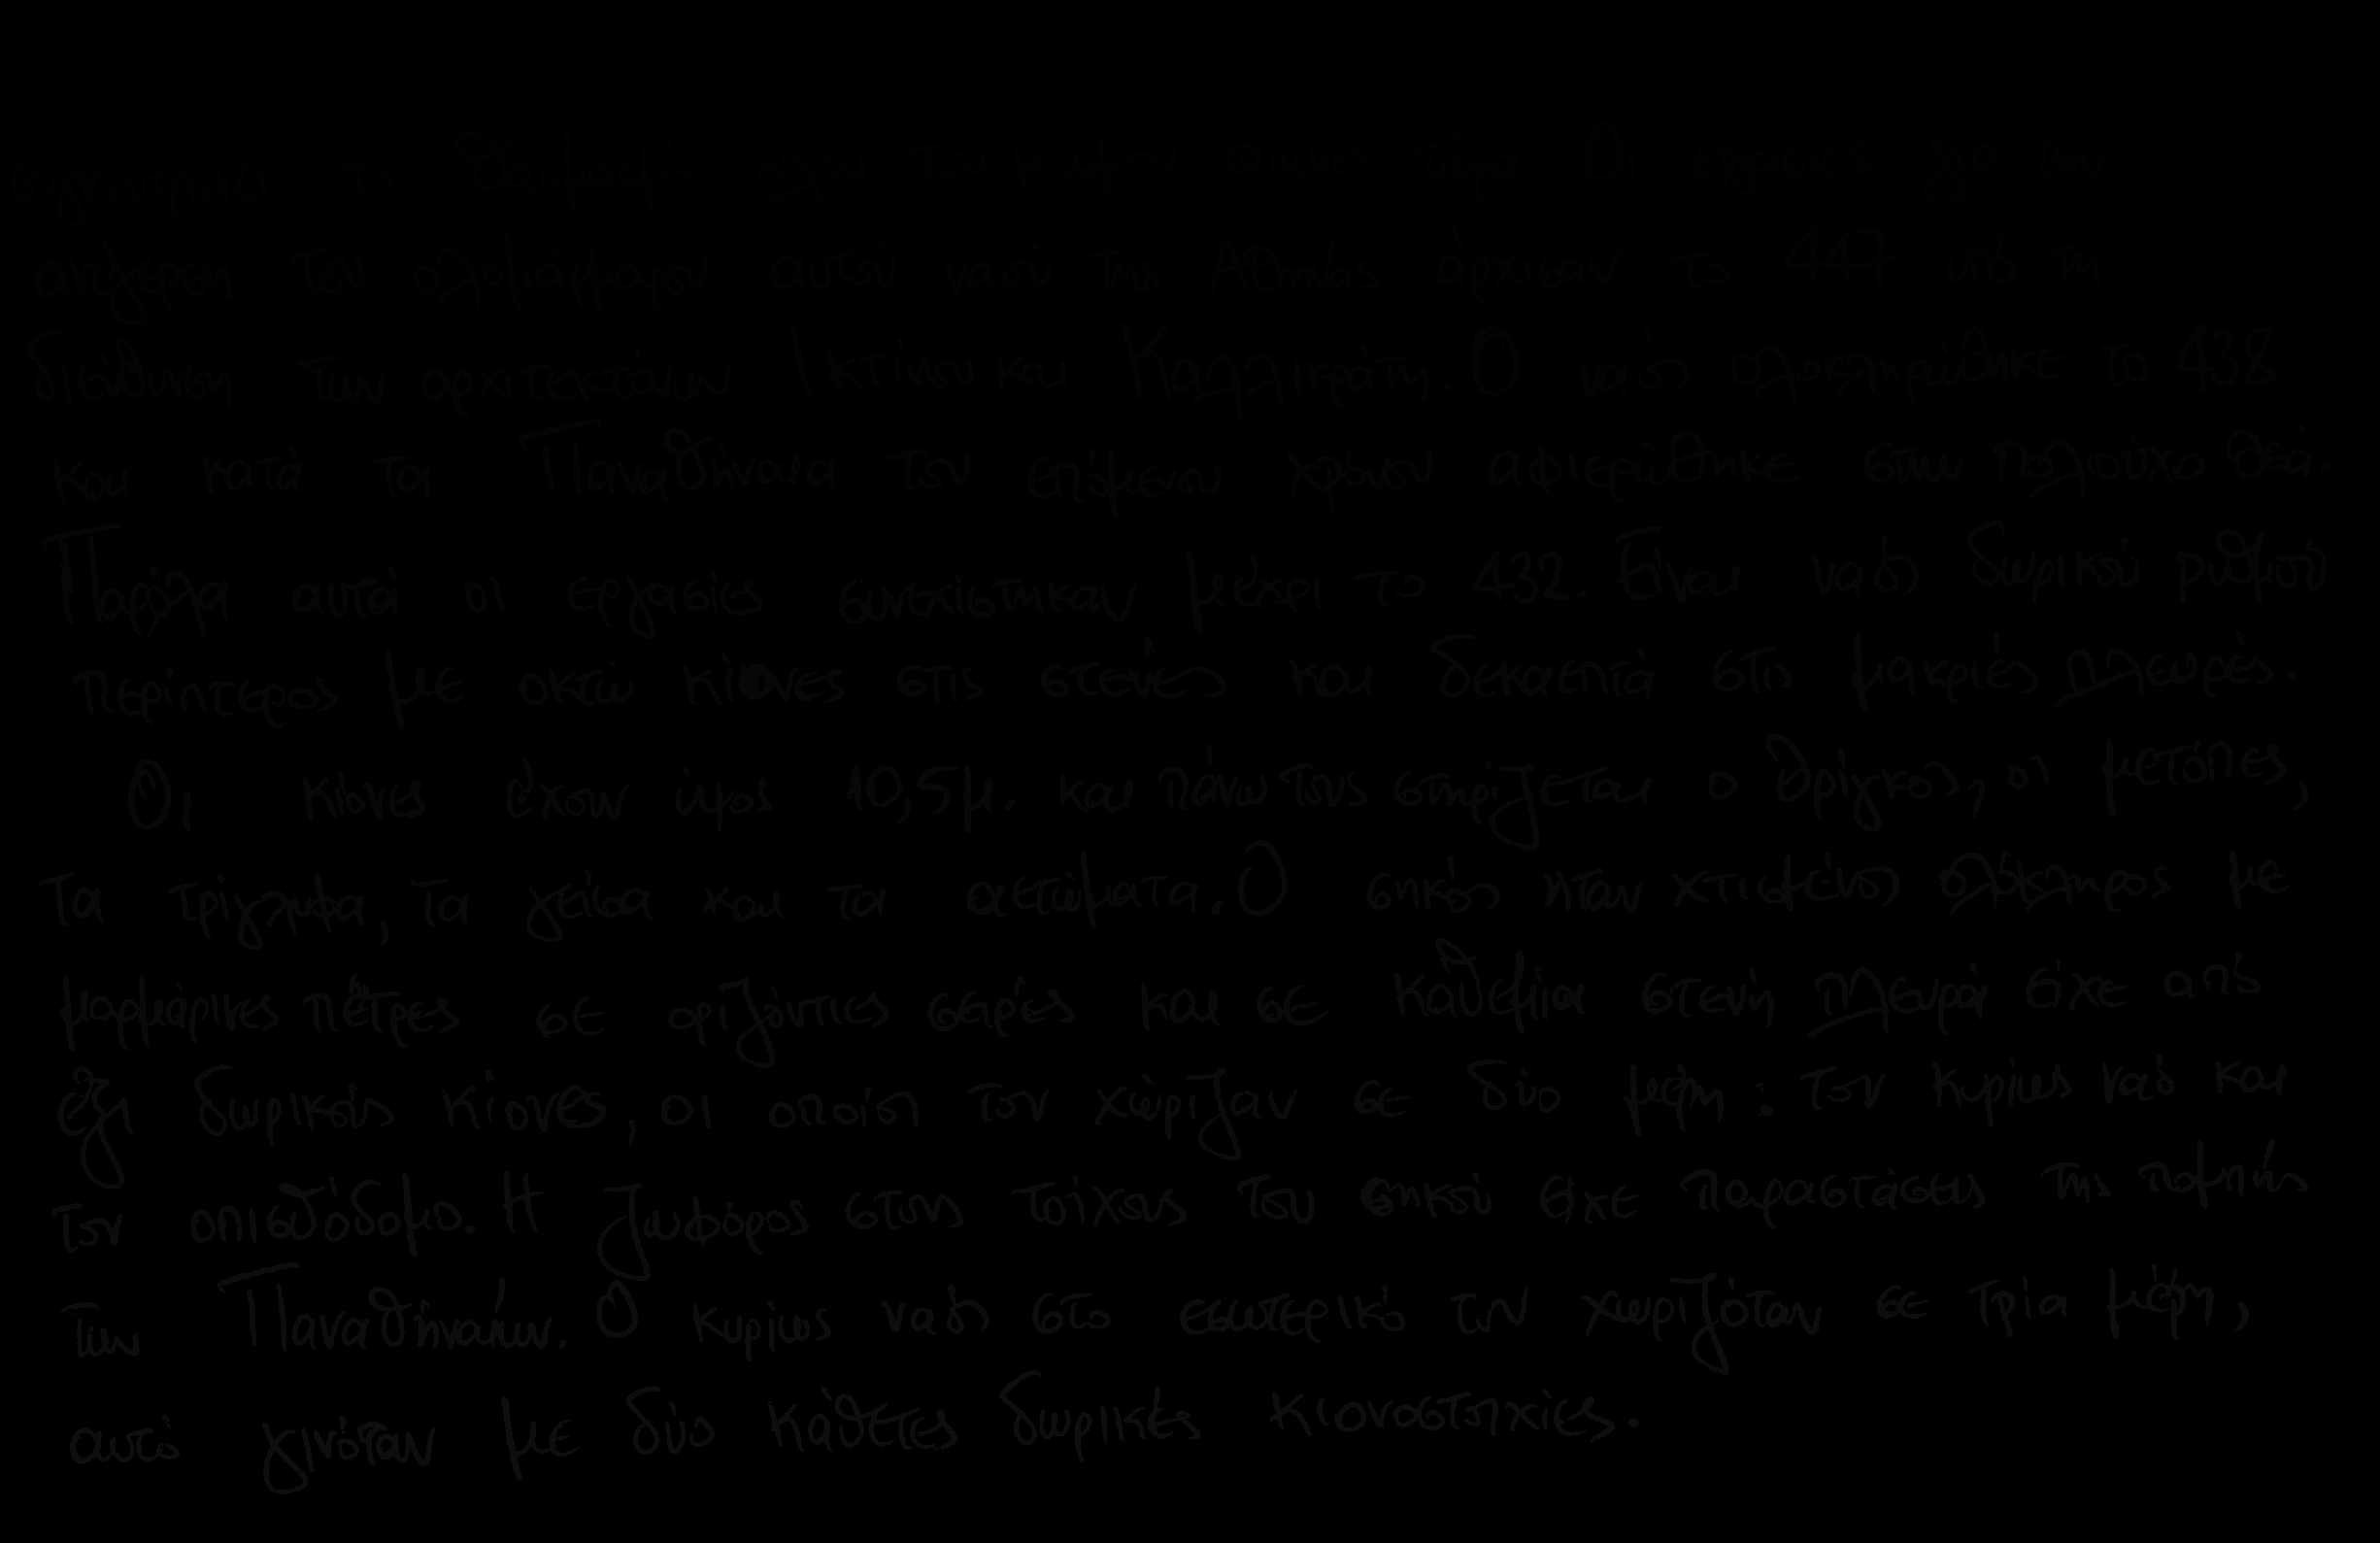 Ο Παρθενώνας είναι το
συγκεντρώνει το θαυμασμό όλου του κόσμου αιώνες τώρα. Οι εργασίες για την
ανέγερση του ολομάρμαρου αυτού ναού της Αθηνάς άρχισαν το 447 υπό τη
διεύθυνση των αρχιτεκτόνων Ικτίνου και Καλλικράτη. Ο ναός ολοκληρώθηκε το 438
και κατά τα Παναθήναια του επόμενου χρόνου αφιερώθηκε στην πολιούχο θεά.
Παρόλα αυτά οι εργασίες συνεχίστηκαν μέχρι το 432. Είναι ναός δωρικού ρυθμού
περίπτερος με οκτώ κίονες στις στενές και δεκαεπτά στις μακριές πλευρές.
Οι κίονες έχουν ύψος 10,5μ. και πάνω τους στηρίζεται ο θρίγκος, οι μετόπες,
τα τρίγλυφα, τα γείσα και τα αετώματα. Ο σηκός ήταν χτισμένος ολόκληρος με
μαρμάρινες πέτρες σε οριζόντιες σειρές και σε καθεμία στενή πλευρά είχε από
έξι δωρικούς κίονες, οι οποίοι τον χώριζαν σε δύο μέρη: τον κυρίως ναό και
τον οπισθόδομο. Η ζωφόρος στους τοίχους του σηκού είχε παραστάσεις της πομπής
των Παναθηναίων. Ο κυρίως ναός στο εσωτερικό του χωριζόταν σε τρία μέρη,
αυτό γινόταν με δύο κάθετες δωρικές κιονοστοιχίες.